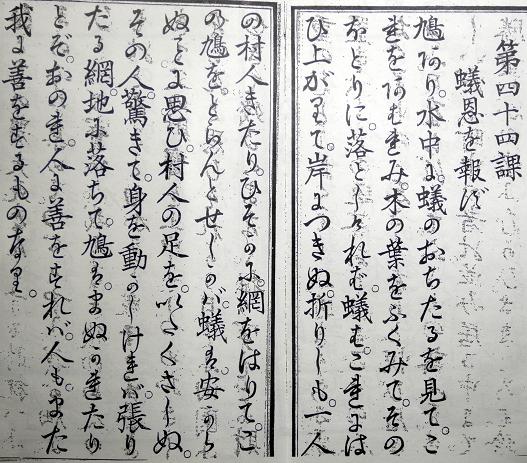 第四十四課
蟻恩を報ず
鳩あり。水中に蟻のおちたるを見て。こ
れをあはれみ。木の葉をふくみて。その
ほとりに落としければ。蟻はこれには
ひ上がりて。岸につきぬ。折りしも。一人
の村人きたり。ひそかに。網をはりて。こ
の鳩を。とらんとせしかば。蟻は。安から
ぬことに思ひ。村人の足を。いたくさしぬ。
その人驚きて。身を動かしければ。張り
たる網。地に落ちて。鳩はまぬかれたり
とぞ。おのれ。人に善をすれば。人もまた
我に善をするものなり。